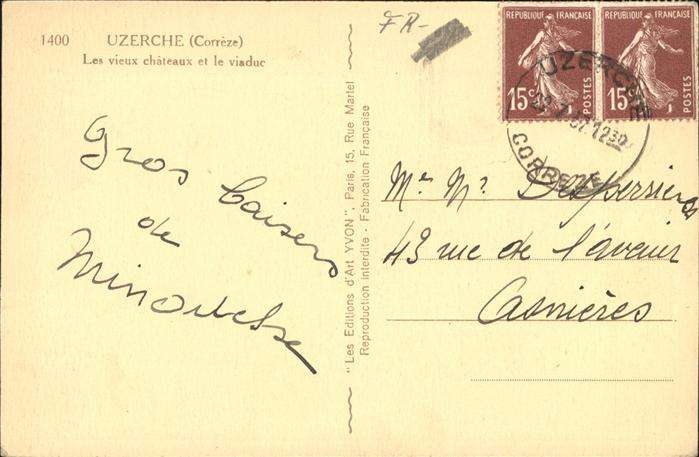 1400 UZERCHE (Corrèze)
Les vieux châteaux et le viaduc
Gros baisers
de
FR-
RÉPUBLIQUE FRANÇAISE
15c
POSTES
RÉPUBLIQUE FRANÇAISE
15c
POSTES
UZERCHE
1230
CORREZE
"Les Editions d'Art YVON", Paris, 15, Rue Martel
Reproduction interdite - Fabrication Française
43 rue de l'avenir
Asnières